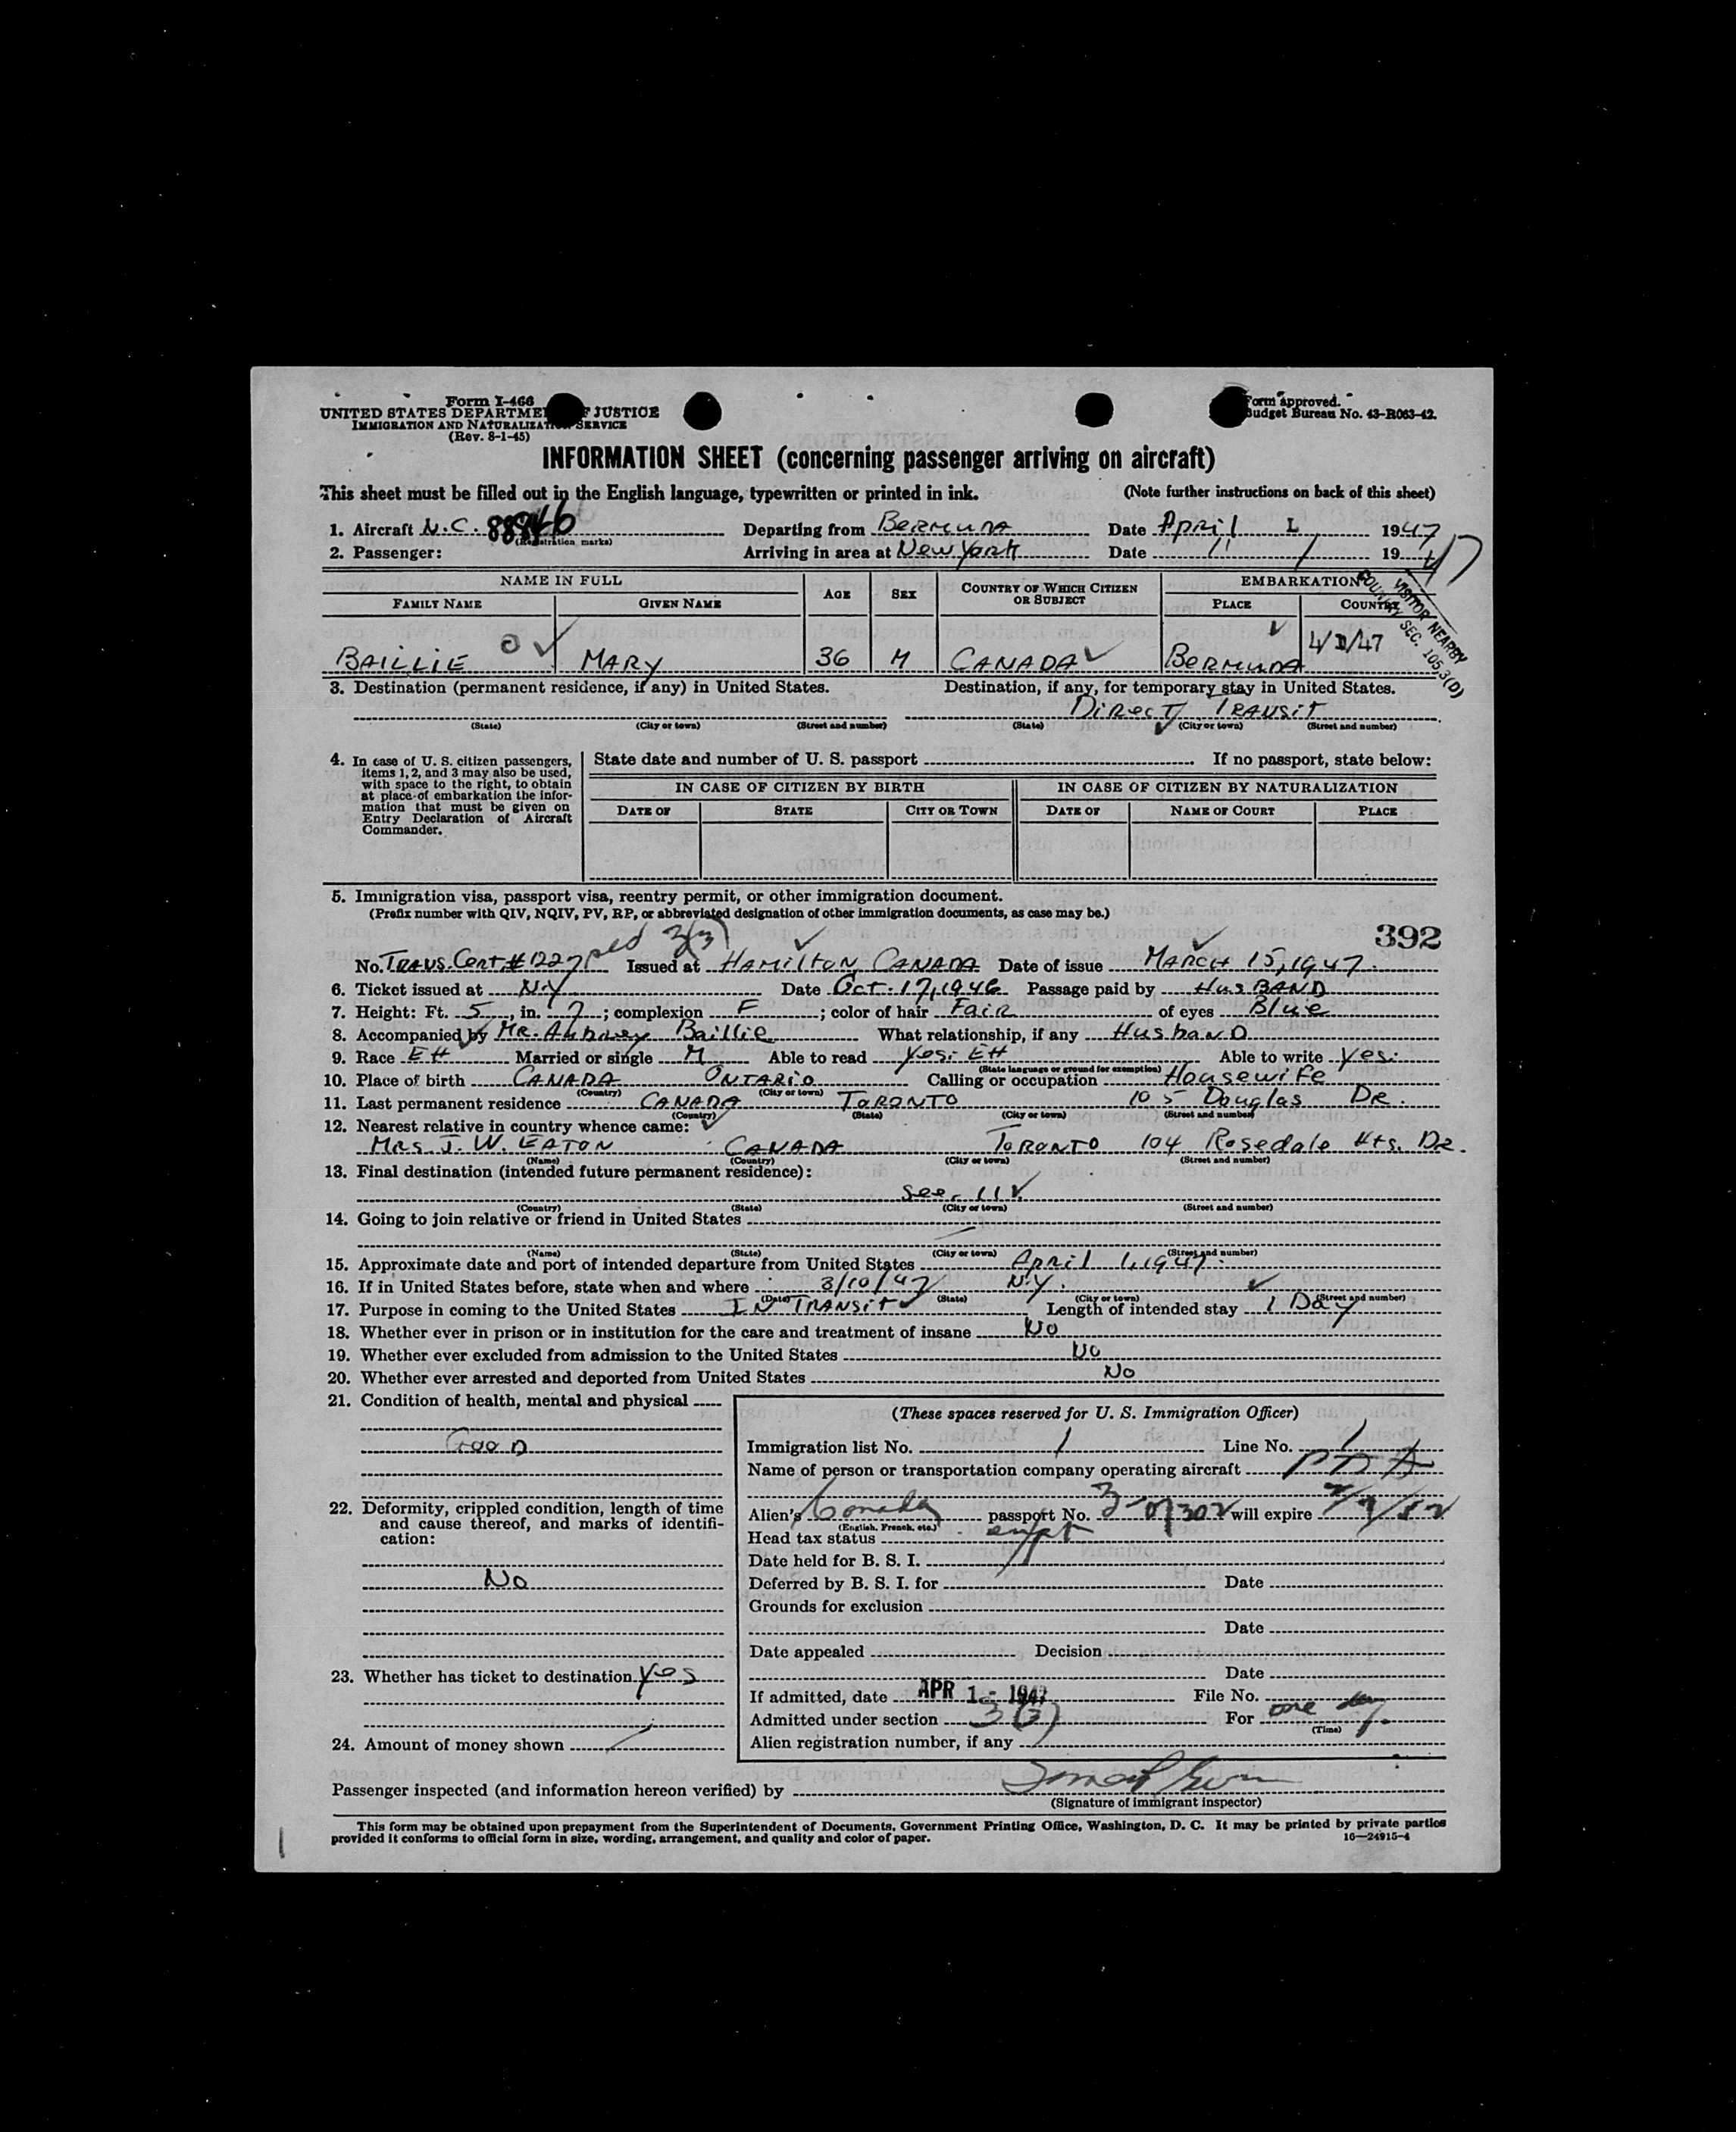 Form I-466
UNITED STATES DEPARTMENT OF JUSTICE
IMMIGRATION AND NATURALIZATION SERVICE
(Rev. 8-1-45)
Form approved.
Budget Bureau No. 43-R063-42.
INFORMATION SHEET (concerning passenger arriving on aircraft)
This sheet must be filled out in the English language, typewritten or printed in ink. (Note further instructions on back of this sheet)
1. Aircraft N.C. 88846 Departing from BERMUDA Date April 1 1947
(Registration marks)
2. Passenger: Arriving in area at New York Date " 1 1947
NAME IN FULL AGE SEX COUNTRY OF WHICH CITIZEN OR SUBJECT EMBARKATION
FAMILY NAME GIVEN NAME PLACE COUNTRY
VISITOR NEARBY
COUNTRY SEC. 105.3(D)
BAILLIE MARY 36 M CANADA BERMUDA 4/D/47
3. Destination (permanent residence, if any) in United States. Destination, if any, for temporary stay in United States.
DIRECT TRANSIT
(State) (City or town) (Street and number) (State) (City or town) (Street and number)
4. In case of U. S. citizen passengers, items 1, 2, and 3 may also be used, with space to the right, to obtain at place of embarkation the information that must be given on Entry Declaration of Aircraft Commander.
State date and number of U. S. passport If no passport, state below:
IN CASE OF CITIZEN BY BIRTH IN CASE OF CITIZEN BY NATURALIZATION
DATE OF STATE CITY OR TOWN DATE OF NAME OF COURT PLACE
5. Immigration visa, passport visa, reentry permit, or other immigration document.
(Prefix number with QIV, NQIV, PV, RP, or abbreviated designation of other immigration documents, as case may be.)
3(3) 392
No. TRANS. Cert # 1227 Issued at HAMILTON, CANADA Date of issue MARCH 15, 1947.
6. Ticket issued at N.Y Date Oct. 17, 1946 Passage paid by HUSBAND
7. Height: Ft. 5, in. 7; complexion F; color of hair FAIR of eyes Blue
8. Accompanied by MR. Aubrey Baillie What relationship, if any HusbanD
9. Race EH Married or single M Able to read Yes: EH Able to write Yes:
(State language or ground for exemption)
10. Place of birth CANADA ONTARIO Calling or occupation Housewife
(Country) (City or town)
11. Last permanent residence CANADA TORONTO 105 Douglas DR.
(Country) (State) (City or town) (Street and number)
12. Nearest relative in country whence came:
MRS. J. W. EATON CANADA TORONTO 104 Rosedale Hts. DR.
(Name) (Country) (City or town) (Street and number)
13. Final destination (intended future permanent residence):
see. 11
(Country) (State) (City or town) (Street and number)
14. Going to join relative or friend in United States
(Name) (State) (City or town) (Street and number)
15. Approximate date and port of intended departure from United States April 1, 1947.
16. If in United States before, state when and where 3/10/47 N.Y.
(Date) (State) (City or town) (Street and number)
17. Purpose in coming to the United States IN TRANSIT Length of intended stay 1 Day
18. Whether ever in prison or in institution for the care and treatment of insane No
19. Whether ever excluded from admission to the United States No
20. Whether ever arrested and deported from United States No
21. Condition of health, mental and physical
GooD
22. Deformity, crippled condition, length of time and cause thereof, and marks of identification:
No
23. Whether has ticket to destination Yes
24. Amount of money shown
(These spaces reserved for U. S. Immigration Officer)
Immigration list No. 1 Line No. 1
Name of person or transportation company operating aircraft P A A
Alien's Canada passport No. will expire
(English, French, etc.)
Head tax status
Date held for B. S. I.
Deferred by B. S. I. for Date
Grounds for exclusion
Date
Date appealed Decision
Date
If admitted, date APR 1 - 1947 File No.
Admitted under section 3(3) For one day.
(Time)
Alien registration number, if any
Passenger inspected (and information hereon verified) by
(Signature of immigrant inspector)
This form may be obtained upon prepayment from the Superintendent of Documents, Government Printing Office, Washington, D. C. It may be printed by private parties
provided it conforms to official form in size, wording, arrangement, and quality and color of paper. 16—24915-4